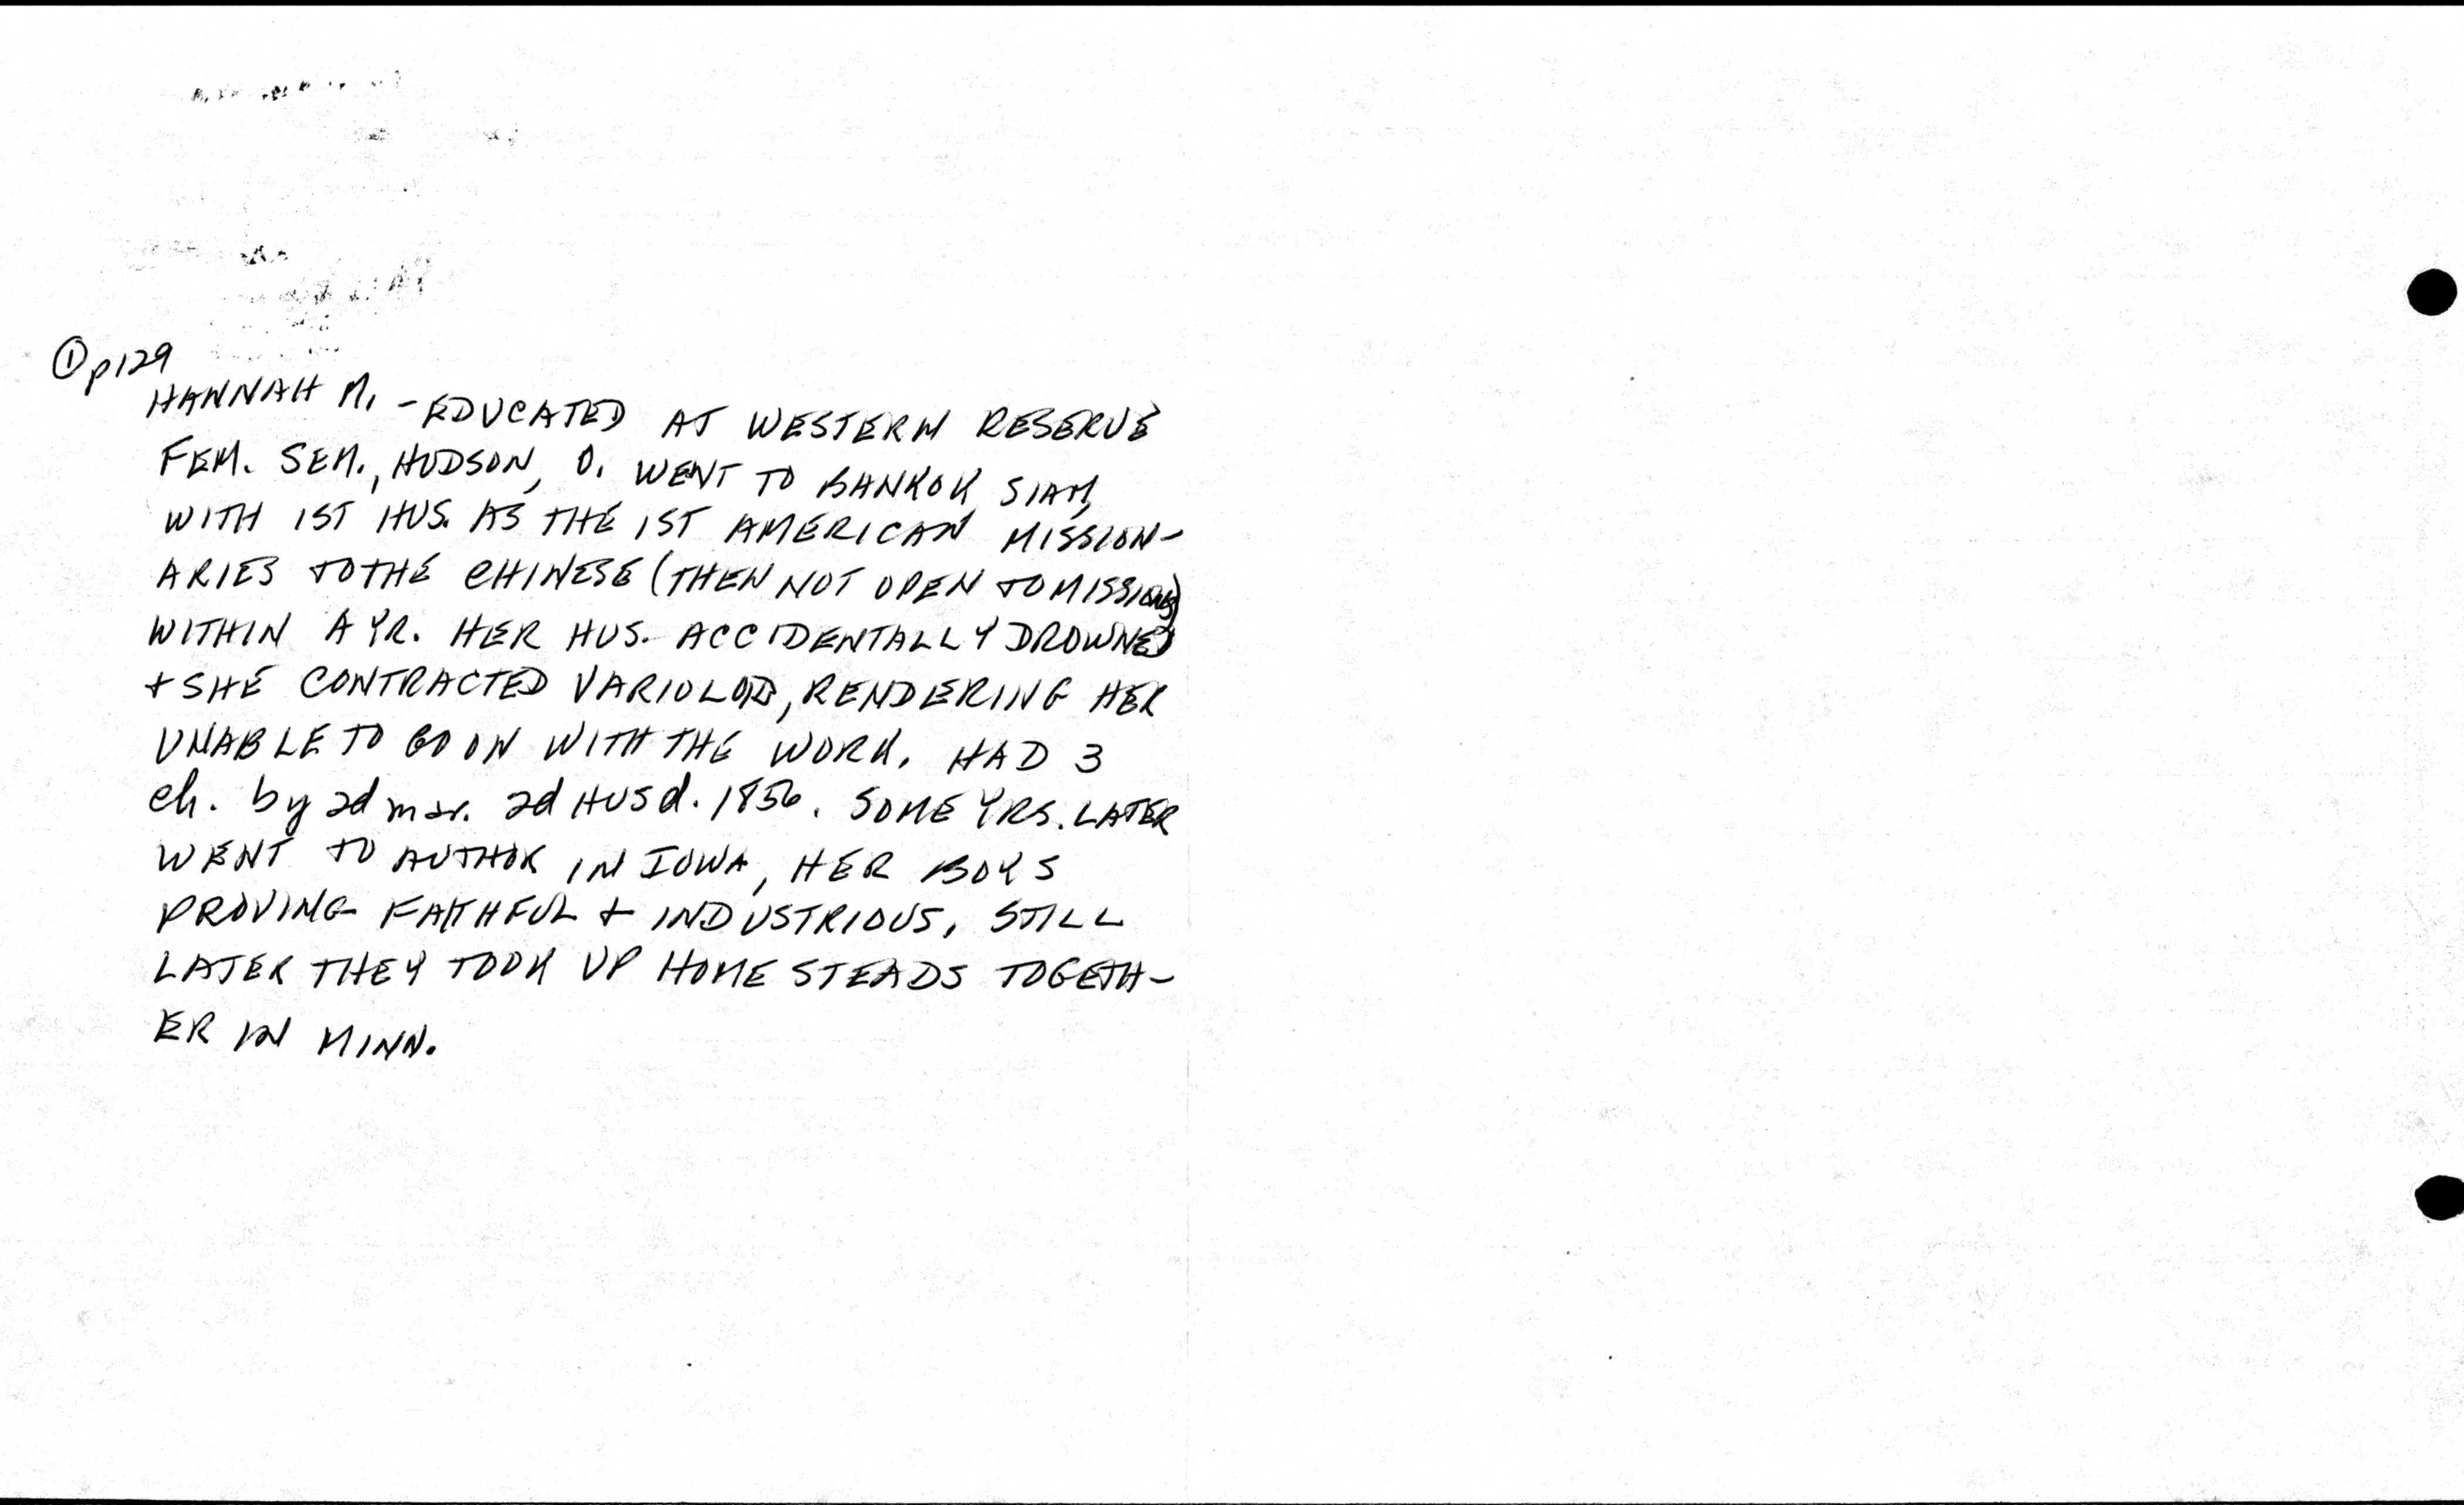 ① p129
HANNAH M. - EDUCATED AT WESTERN RESERVE
FEM. SEM., HUDSON, O. WENT TO BANKOK, SIAM,
WITH 1ST HUS. AS THE 1ST AMERICAN MISSION-
ARIES TO THE CHINESE (THEN NOT OPEN TO MISSIONS)
WITHIN A YR. HER HUS. ACCIDENTALLY DROWNED
+ SHE CONTRACTED VARIOLOID, RENDERING HER
UNABLE TO GO ON WITH THE WORK. HAD 3
ch. by 2d mar. 2d HUS d. 1856. SOME YRS. LATER
WENT TO AUTHOR IN IOWA, HER BOYS
PROVING FAITHFUL + INDUSTRIOUS. STILL
LATER THEY TOOK UP HOMESTEADS TOGETH-
ER IN MINN.